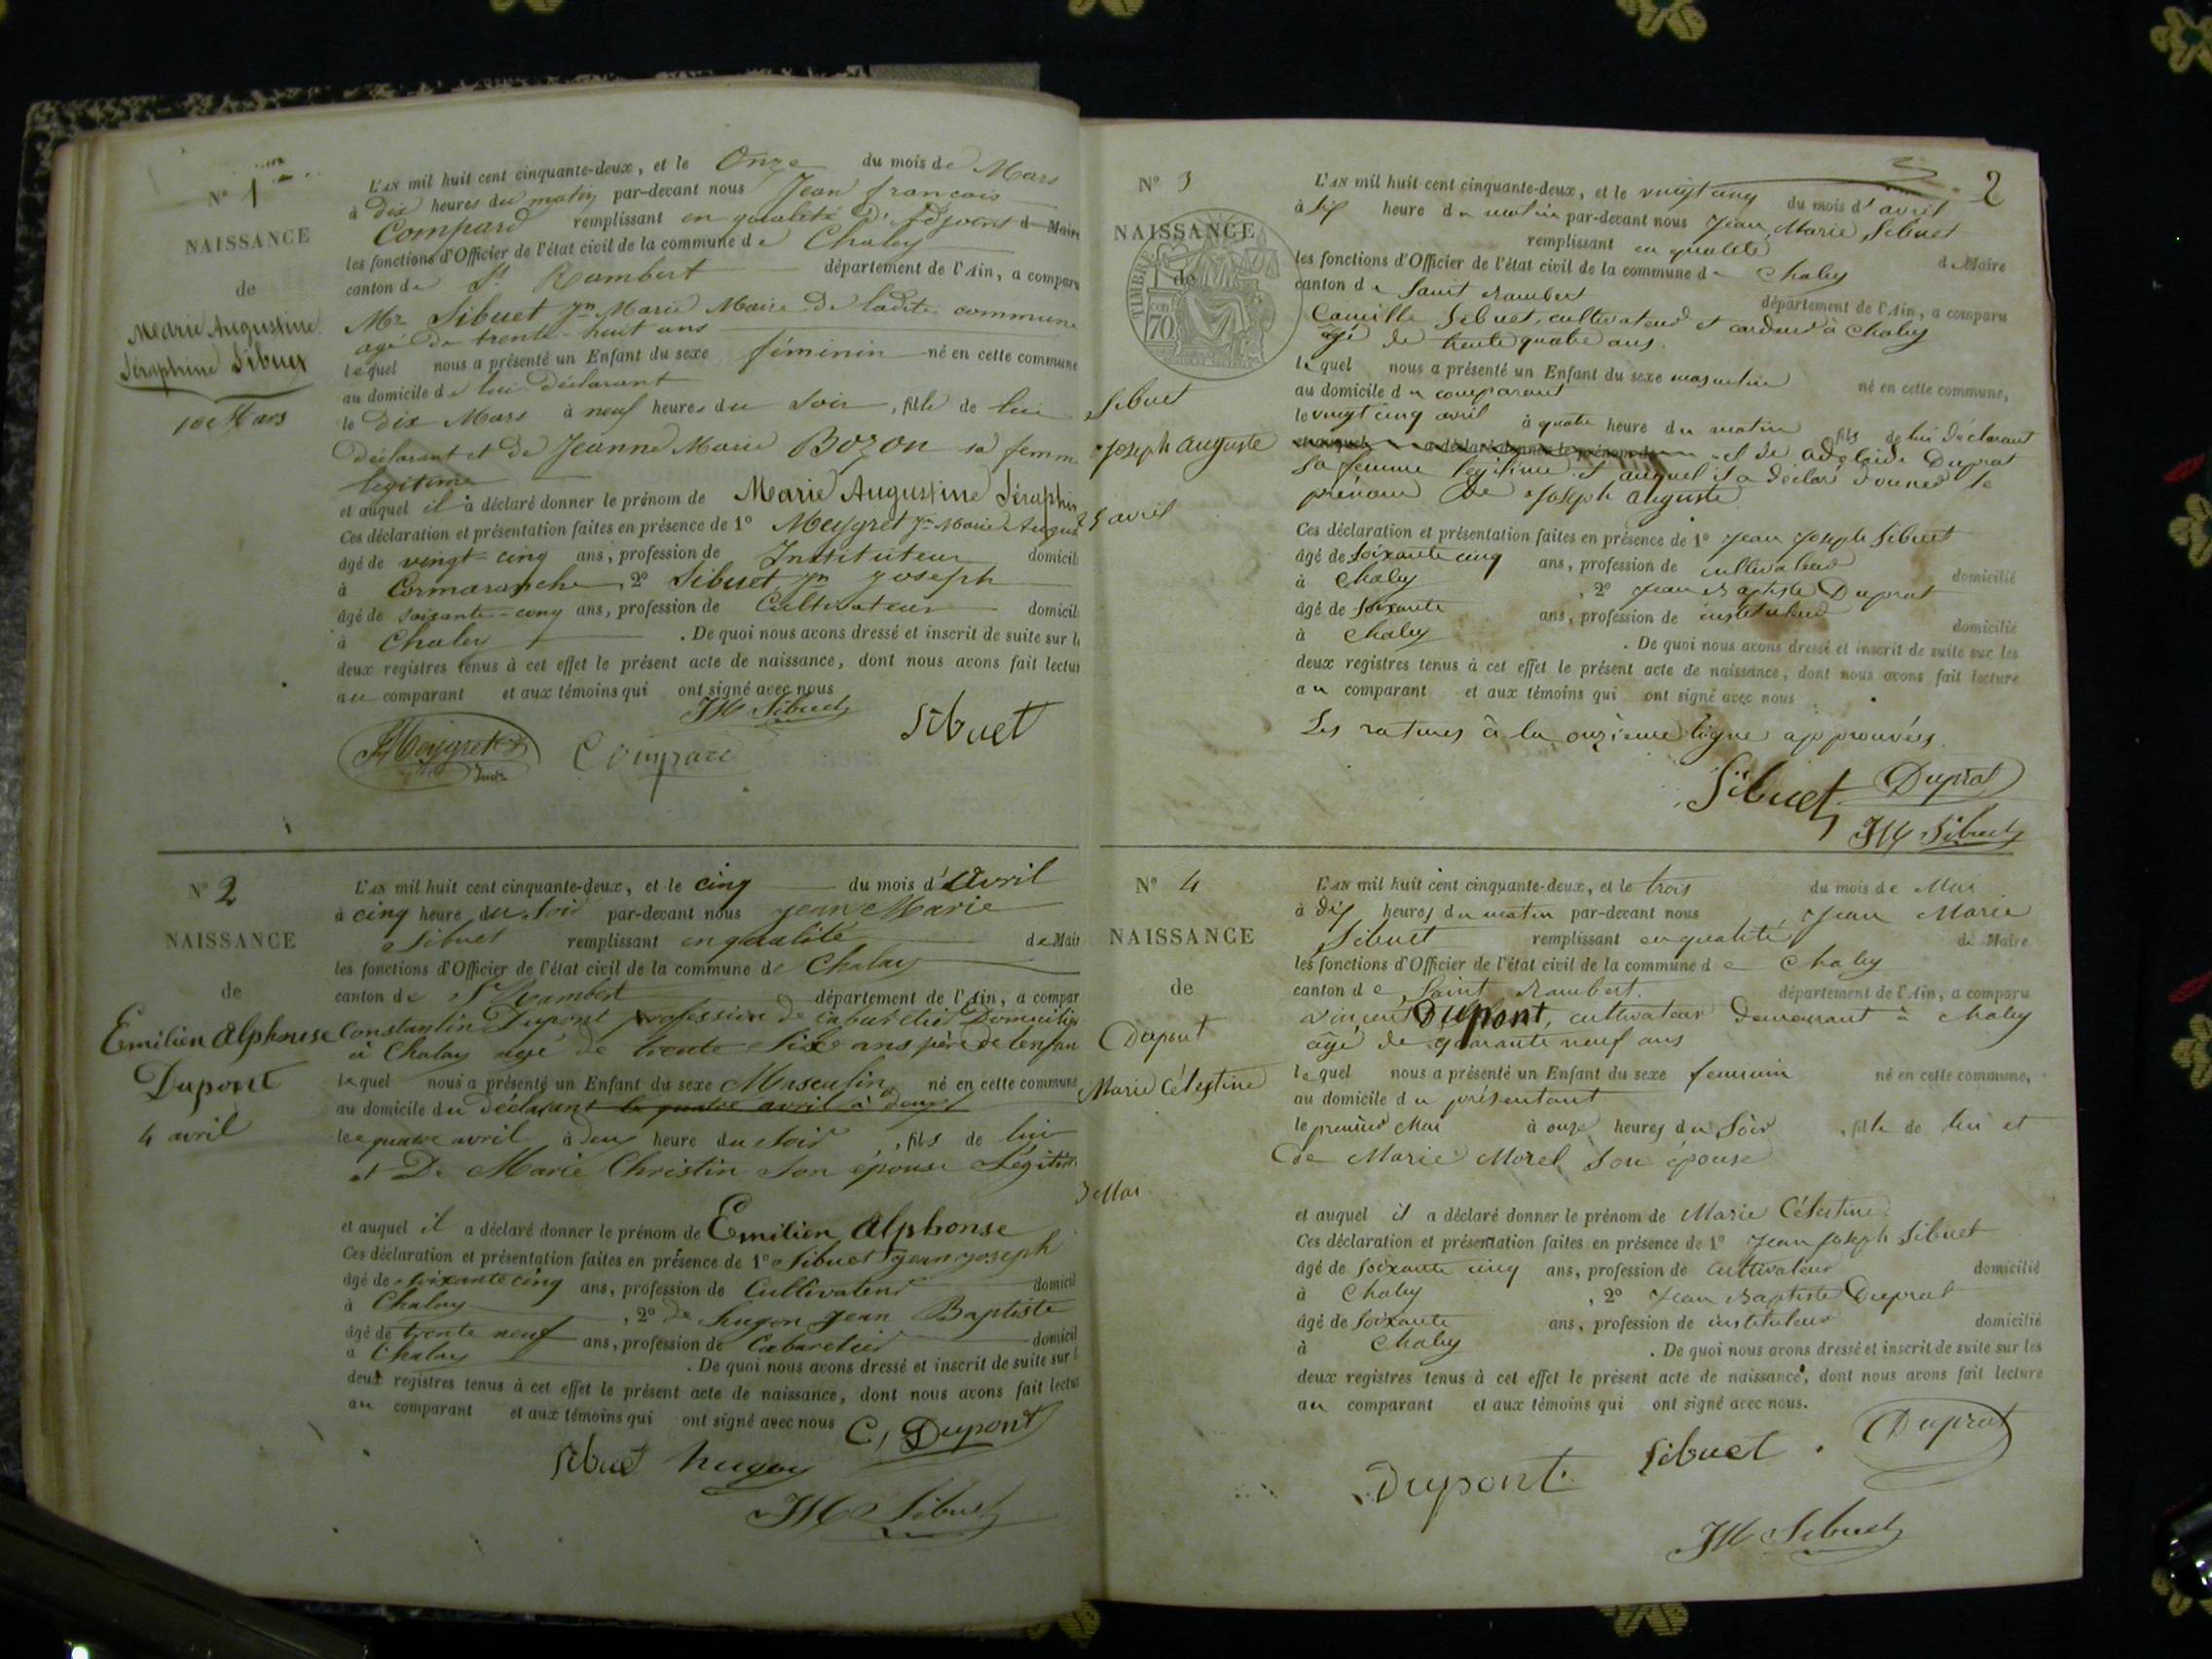 N° 1
NAISSANCE
de
Marie Augustine
Séraphine Sibuet
10 Mars
L'AN mil huit cent cinquante-deux, et le Onze du mois de Mars
à dix heures du matin par-devant nous Jean françois
Compard remplissant en qualité d'Adjoint d Maire
les fonctions d'Officier de l'état civil de la commune de Chaley
canton de St Rambert département de l'Ain, a comparu
Mr Sibuet Jn Marie Maire de ladite commune
agé de trente-huit ans
lequel nous a présenté un Enfant du sexe féminin né en cette commune
au domicile de lui Déclarant
le dix Mars à neuf heures du Soir, fille de lui
déclarant et de Jeanne Marie Bozon sa femm
légitime
et auquel il a déclaré donner le prénom de Marie Augustine Séraphin
Ces déclaration et présentation faites en présence de 1° Meygret Jn Marie August
âgé de vingt-cinq ans, profession de Instituteur domicil
à Cormaranche, 2° Sibuet Jn Joseph
âgé de soixante-cinq ans, profession de Cultivateur domicil
à Chaley. De quoi nous avons dressé et inscrit de suite sur l
deux registres tenus à cet effet le présent acte de naissance, dont nous avons fait lectur
au comparant et aux témoins qui ont signé avec nous
JM Sibuet
Sibuet
Meygret
Compard
N° 2
NAISSANCE
de
Emilien Alphonse
Dupont
4 avril
L'AN mil huit cent cinquante-deux, et le cinq du mois d'Avril
à cinq heure du Soir par-devant nous Jean Marie
Sibuet remplissant en qualité de Mair
les fonctions d'Officier de l'état civil de la commune de Chalay
canton de St Rambert département de l'Ain, a compar
Constantin Dupont profession de cabaretier Domicilié
à Chalay agé de trente Six ans père de l'enfan
lequel nous a présenté un Enfant du sexe Masculin né en cette commune
au domicile du déclarant le quatre avril à deux
le quatre avril à deux heure du Soir, fils de lui
et De Marie Christin Son épouse Légitim
et auquel il a déclaré donner le prénom de Emilien Alphonse
Ces déclaration et présentation faites en présence de 1° Sibuet Jean Joseph
âgé de soixante cinq ans, profession de Cultivateur domicil
à Chalay, 2° de hugon Jean Baptiste
âgé de trente neuf ans, profession de Cabaretier domicil
à Chalay. De quoi nous avons dressé et inscrit de suite sur l
deux registres tenus à cet effet le présent acte de naissance, dont nous avons fait lectur
au comparant et aux témoins qui ont signé avec nous C, Dupont
Sibuet hugon
JM Sibuet
2
N° 3
NAISSANCE
de
TIMBRE
70
Sibuet
Joseph Auguste
25 avril
L'AN mil huit cent cinquante-deux, et le vingt cinq du mois d'avril
à six heure du matin par-devant nous Jean Marie Sibuet
remplissant en qualité d Maire
les fonctions d'Officier de l'état civil de la commune de Chaley
canton de Saint Rambert département de l'Ain, a comparu
Camille Sibuet, cultivateur et cardeur à Chaley
âgé de trente quatre ans
lequel nous a présenté un Enfant du sexe masculin né en cette commune,
au domicile du comparant
le vingt cinq avril à quatre heure du matin fils de lui déclarant
et auquel a déclaré donner le prénom de et de adelaïde Duprat
sa femme légitime et auquel il a déclaré donner le
prénom de Joseph Auguste
Ces déclaration et présentation faites en présence de 1° Jean Joseph Sibuet
âgé de soixante cinq ans, profession de cultivateur domicilié
à Chaley, 2° Jean Baptiste Duprat
âgé de soixante ans, profession de instituteur domicilié
à Chaley. De quoi nous avons dressé et inscrit de suite sur les
deux registres tenus à cet effet le présent acte de naissance, dont nous avons fait lecture
au comparant et aux témoins qui ont signé avec nous
Les ratures à la onzième ligne approuvées
Sibuet Duprat
JM Sibuet
N° 4
NAISSANCE
de
Dupont
Marie Célestine
3 Mai
L'AN mil huit cent cinquante-deux, et le trois du mois de Mai
à dix heures du matin par-devant nous Jean Marie
Sibuet remplissant en qualité de Maire
les fonctions d'Officier de l'état civil de la commune de Chaley
canton de Saint Rambert. département de l'Ain, a comparu
Vincent Dupont, cultivateur demeurant à Chaley
âgé de quarante neuf ans
lequel nous a présenté un Enfant du sexe feminin né en cette commune,
au domicile du présentant
le premier Mai à onze heures du Soir, fille de lui et
de Marie Morel Son épouse
et auquel il a déclaré donner le prénom de Marie Célestine
Ces déclaration et présentation faites en présence de 1° Jean Joseph Sibuet
âgé de soixante cinq ans, profession de cultivateur domicilié
à Chaley, 2° Jean Baptiste Duprat
âgé de soixante ans, profession de instituteur domicilié
à Chaley. De quoi nous avons dressé et inscrit de suite sur les
deux registres tenus à cet effet le présent acte de naissance, dont nous avons fait lecture
au comparant et aux témoins qui ont signé avec nous.
Dupont Sibuet Duprat
JM Sibuet